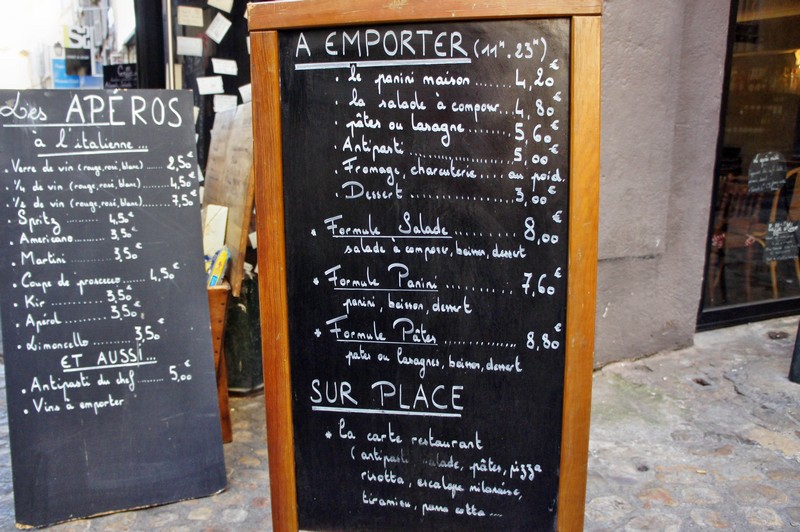 Les APÉROS
à l'italienne...
. Verre de vin (rouge, rosé, blanc)........ 2,50€
. 1/4 de vin (rouge, rosé, blanc)........ 4,50€
. 1/2 de vin (rouge, rosé, blanc)........ 7,50€
. Spritz ......... 4,50€
. Americano......... 3,50€
. Martini ......... 3,50€
. Coupe de prosecco........ 4,50€
. Kir ............ 3,50€
. Apérol ......... 3,50€
. Limoncello ......... 3,50€
ET AUSSI...
. Antipasti du chef ...... 5,00€
. Vins à emporter
A EMPORTER (11H.23H)
. le panini maison........ 4,20€
. la salade à composer... 4,80€
. pâtes ou lasagne........ 5,60€
. Antipasti ............ 5,00€
. Fromage, charcuterie... au poid.
. Dessert ............ 3,00€
* Formule Salade ......... 8,00€
salade à composer, boisson, dessert
* Formule Panini ......... 7,60€
panini, boisson, dessert
* Formule Pâtes ............ 8,80€
pates ou lasagnes, boisson, dessert
SUR PLACE
* la carte restaurant
(antipasti, salade, pâtes, pizza
risotto, escalope milanaise,
tiramisu, panna cotta....